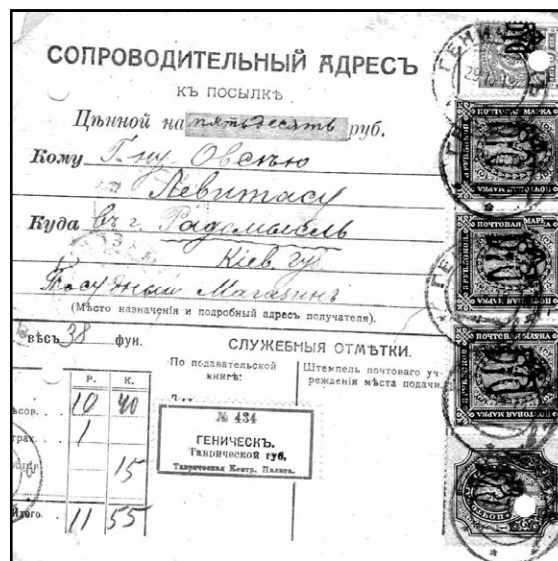 СОПРОВОДИТЕЛЬНЫЙ АДРЕСЪ
КЪ ПОСЫЛКѢ
Цѣнной на пятьдесятъ руб.
Кому Г-ну Овсѣю
Левитасу
Куда въ г. Радомысль
Кіев. гу
Посудный Магазинъ
(Мѣсто назначенія и подробный адресъ получателя).
вѣсъ 38 фун.
СЛУЖЕБНЫЯ ОТМѢТКИ.
По подавательской книгѣ:
Штемпель почтоваго уч-
режденія мѣста подачи
Р. К.
ѣсов. 10 40
трах. 1
15
Итого 11 55
№ 434
ГЕНИЧЕСКЪ.
Таврической губ.
Таврическая Контр. Палата.
ПОЧТОВАЯ МАРКА
ПОЧТОВАЯ МАРКА
ПОЧТОВАЯ МАРКА